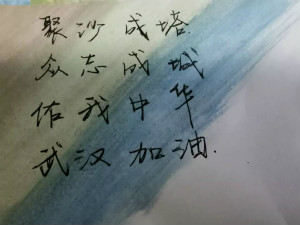 聚沙成塔.
众志成城
佑我中华
武汉加油.